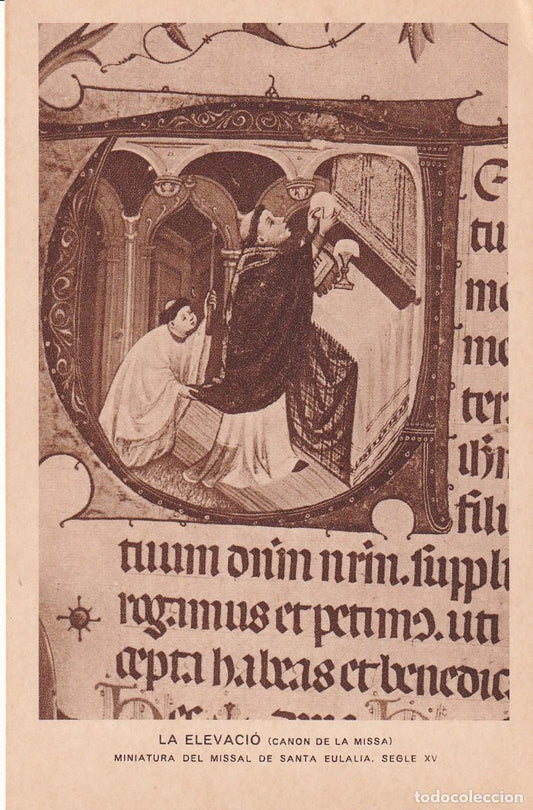 tu
me
me
ter
ihm
fili
tuum dnm nrm. suppli
rogamus et petimꝰ. uti
cepta habeas et benedic
LA ELEVACIÓ (CANON DE LA MISSA)
MINIATURA DEL MISSAL DE SANTA EULALIA. SEGLE XV
todocoleccion